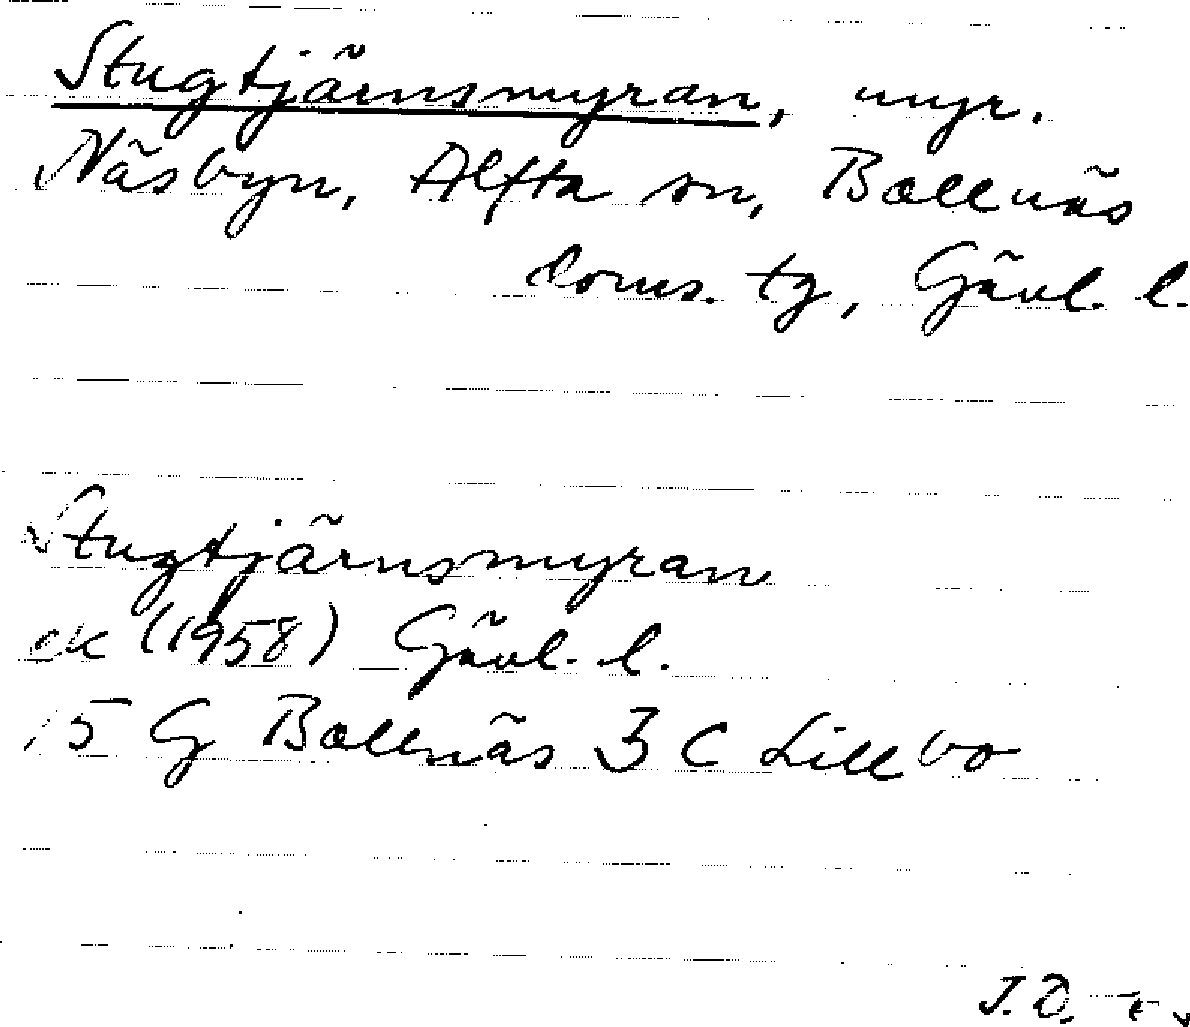 Stugtjärnsmyran, myr.
Näsbyn, Alfta sn, Bollnäs
doms. tg, Gävl. l.
Stugtjärnsmyran
ek (1958) Gävl. l.
15 G Bollnäs 3 C Lillbo
J.Ö.